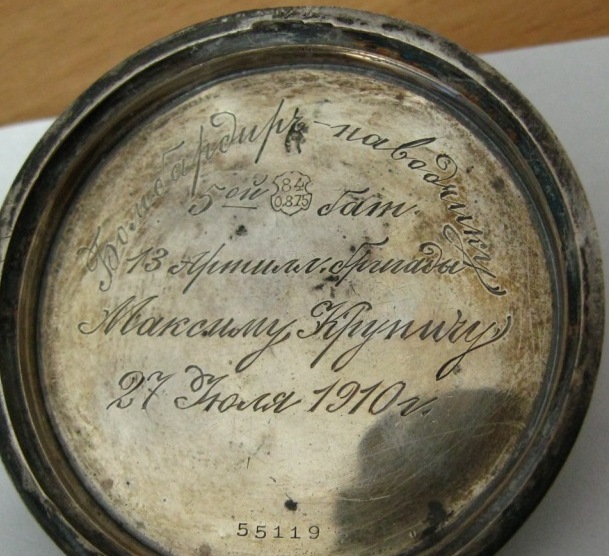 Бомбардиръ-наводчику
5ой 84 0.875 бат.
13 Артилл. бригады
Максиму Крупичу
27 Июля 1910 г.
55119